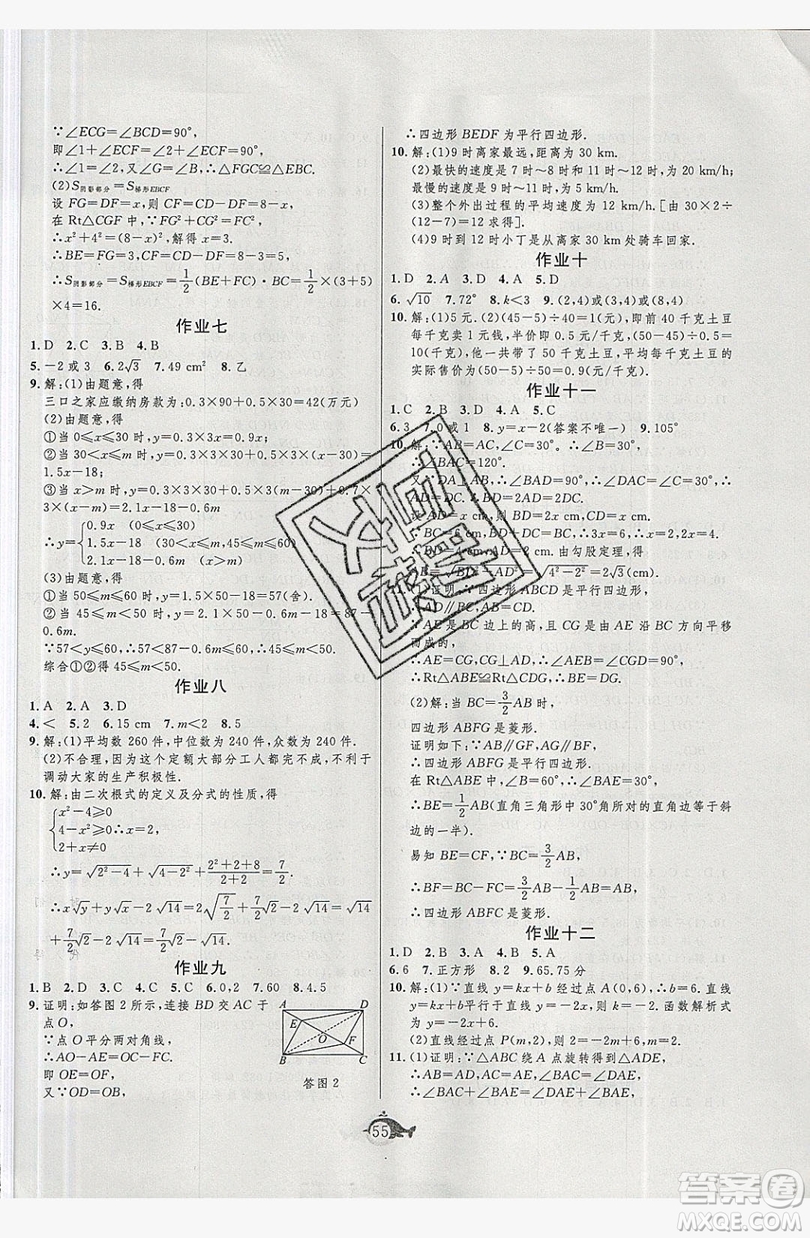 ∵∠ECG=∠BCD=90°,
即∠1+∠ECF=∠2+∠ECF=90°,
∴∠1=∠2,又∠A=∠G,∴△FGC≌△EBC.
(2)S阴影部分=S梯形EBCF
设 FG=DF=x,则 CF=CD-DF=8-x,
在 Rt△CGF 中,FG²+CG²=CF²,
∴x²+4²=(8-x)²,解得 x=3,
∴BE=FG=3,CF=CD-DF=8-3=5,
∴S阴影部分=S梯形EBCF=1/2(BE+FC)·BC=1/2×(3+5)
×4=16.
作业七
1.D 2.C 3.B 4.B
5.-2 或 3 6.2√3 7.49 cm² 8.乙
9.解:(1)由题意,得
三口之家应缴纳房款为:0.3×90+0.5×30=42(万元)
(2)由题意,得
①当 0≤x≤30 时,y=0.3×3x=0.9x
②当 30<x≤m 时,y=0.3×3×30+0.5×3×(x-30)=
1.5x-18;
③当 x>m 时,y=0.3×30×3+0.5×3(m-30)+0.7×
3×(x-m)=2.1x-18-0.6m.
∴y={0.9x (0≤x≤30)
1.5x-18 (30<x≤m)
2.1x-18-0.6m (x>m)
(3)由题意,得
①当 50≤m≤60 时,y=1.5×50-18=57(舍)
②当 45≤m<50 时,y=2.1×50-18-0.6m=87-
0.6m.
∵57<y≤60,∴57<87-0.6m≤60,∴45≤m<50.
综合①②得 45≤m<50.
作业八
1.A 2.A 3.D
4.< 5.2 6.15 cm 7.m<2 8.5
9.解:(1)平均数 260 件,中位数为 240 件,众数为 240 件.
(2)不合理,因为这个定额大部分工人都完不成,不利于
调动大家的生产积极性.
10.解:由二次根式的定义及分式的性质,得
{x²-4≥0
4-x²≥0∴x=2,
2+x≠0
∴y=(√(2²-4)+√(4-2²)+2+2+2+2+2+2+2)/(2+2+2+2)=7/2 
∴x√y+y√x-√14=2√(7/2)+7/2√2-√14=√14
+7/2√2-√14=7/2√2.
作业九
1.B 2.D 3.C 4.C 5.C 6.2 7.60 8.4.5
9.证明:如答图 2 所示,连接 BD 交 AC 于
点 O,
∵点 O 平分两对角线,
∴AO-AE=OC-FC.
即 OE=OF,
又∵OD=OB,
A D E O F B C
答图 2
∴四边形 BEDF 为平行四边形.
10.解:(1)9 时离家最远,距离为 30 km.
(2)最快的速度是 7 时~8 时和 11 时~12 时,为 20 km/h;
最慢的速度是 9 时~11 时,为 12 km/h.
(3)整个外出过程的平均速度为 12 km/h.[由 30×2÷
(12-7)=12 求得].
(4)9 时到 12 时小丁是从离家 30 km 处骑车回家.
作业十
1.D 2.A 3.D 4.A 5.D
6.√10 7.72° 8.k<3 9.(2,4)或(3,4)或(8,4)
10.解:(1)5 元.(2)(45-5)÷40=1(元),即前 40 千克土豆
每千克卖 1 元钱,半价即 0.5 元/千克,(50-45)÷0.5=
10(千克),他一共带了 50 千克土豆,所以平均每千克土豆的
实际售价为(50-5)÷50=0.9(元/千克).
作业十一
1.C 2.B 3.D 4.A 5.C
6.3 7.0 或 1 8.y=x-2(答案不唯一) 9.105°
10.解:∵AB=AC,∴∠B=∠C=30°,
∴∠BAC=120°.
又∵DA⊥AB,∴∠DAC=120°-90°=30°,
∴AD=DC.∴BD=2AD=2DC.
设 AD=DC=x cm,则 BD=2x cm,
∵BC=6 cm,BD+DC=BC,∴3x=6,∴x=2,AD=2,
∴BD=4 cm.由勾股定理,
得 AB=√(BD²-AD²)=√(4²-2²)=2√3(cm).
11.(1)证明:∵四边形 ABCD 是平行四边形,
∴AB=CD.
∵AE是 BC 边上的高,且 CG 是由 AE 沿 BC 方向平移
而成的,
∴AE=CG,CG⊥AD.∴∠AEB=∠CGD=90°.
∴Rt△ABE≌Rt△CDG.∴BE=DG.
(2)解:当 BC=3/2AB 时,
四边形 ABFG 是菱形.
证明如下:∵AB∥GF,AG∥BF,
∴四边形 ABFG 是平行四边形.
在 Rt△ABE 中,∵∠B=60°,∴∠BAE=30°,
∴BE=1/2AB(直角三角形中 30°角所对的直角边等于斜
边的一半).
易知 BE=CF,∵BC=3/2AB,
∴BF=BC-CF=3/2AB-1/2AB=AB,
∴四边形 ABFC 是菱形.
作业十二
1.D 2.B 3.A 4.B 5.A
6.6 7.正方形 8.2 9.65.75 分
10.解:(1)∵直线 y=kx+b 经过点 A(0,6),∴b=6,∵直
线 y=kx+b 平行于直线 y=-2x,∴k=-2.∴函数解析式
为 y=-2x+6.
(2)∵直线经过点 P(m,2),则 2=-2m+6,m=2.
11.(1)证明:∵△ABC 绕 A 点旋转得到△ADE,
∴AB=AD,AC=AE,∠BAC=∠DAE,
∴∠BAC+∠BAE=∠DAE+∠BAE,
55
答案圈
MXQE.COM